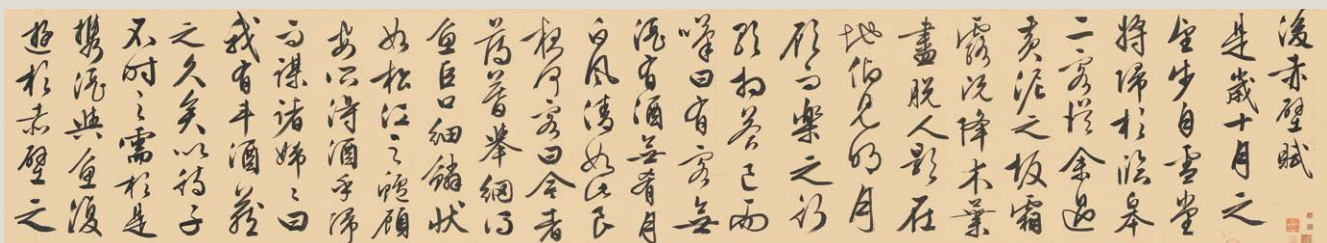 後赤壁賦
是歲十月之
望步自雪堂
將歸於臨皋
二客從余過
黃泥之坂霜
露既降木葉
盡脫人影在
地仰見明月
顧而樂之行
歌相答已而
嘆曰有客無
酒有酒無肴月
白風清如此良
夜何客曰今者
薄暮舉網得
魚巨口細鱗狀
如松江之鱸顧
安所得酒乎歸
而謀諸婦〻曰
我有斗酒藏
之久矣以待子
不時之需於是
攜酒與魚復
遊於赤壁之